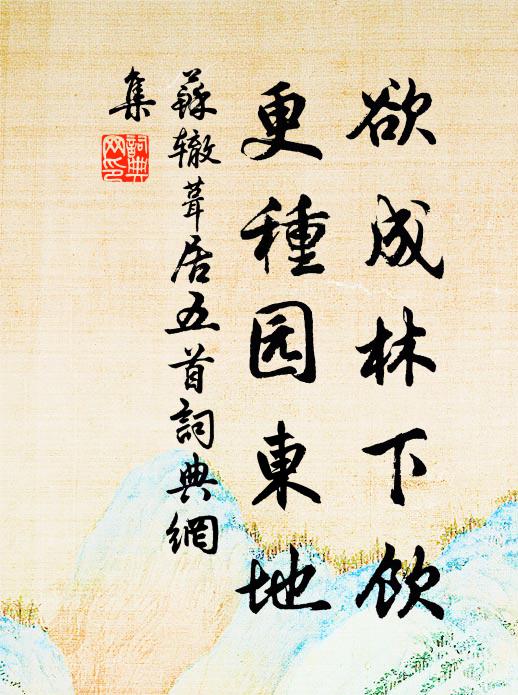 欲成林下飲
更種园東地
蘇辙葺居五首詞典網
集
詞典
网印